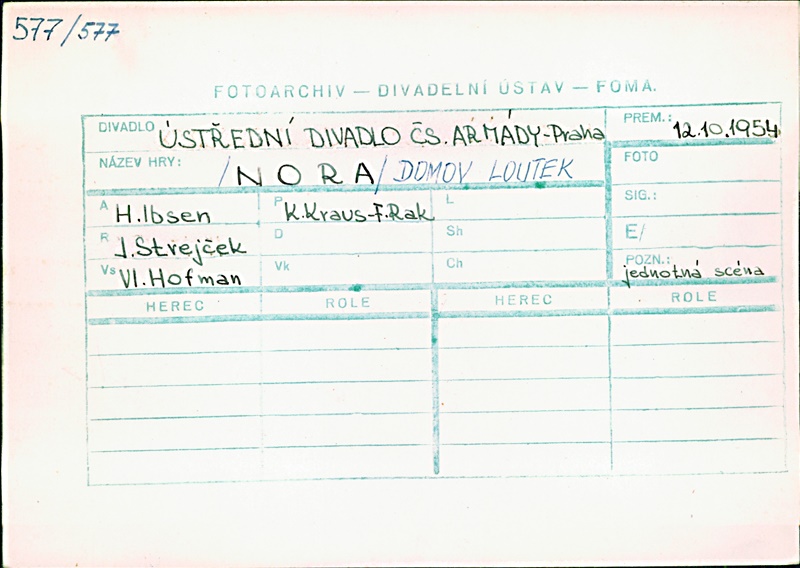 577/577
FOTOARCHIV — DIVADELNÍ ÚSTAV — FOMA.
DIVADLO ÚSTŘEDNÍ DIVADLO ČS. ARMÁDY-Praha
PREM.: 12.10.1954
NÁZEV HRY: /NORA/ DOMOV LOUTEK
FOTO
A H.Ibsen
P K.Kraus-F.Rak
L
SIG.:
R J.Strejček
D
Sh
E/
Vs Vl.Hofman
Vk
Ch
POZN.: jednotná scéna
HEREC ROLE HEREC ROLE